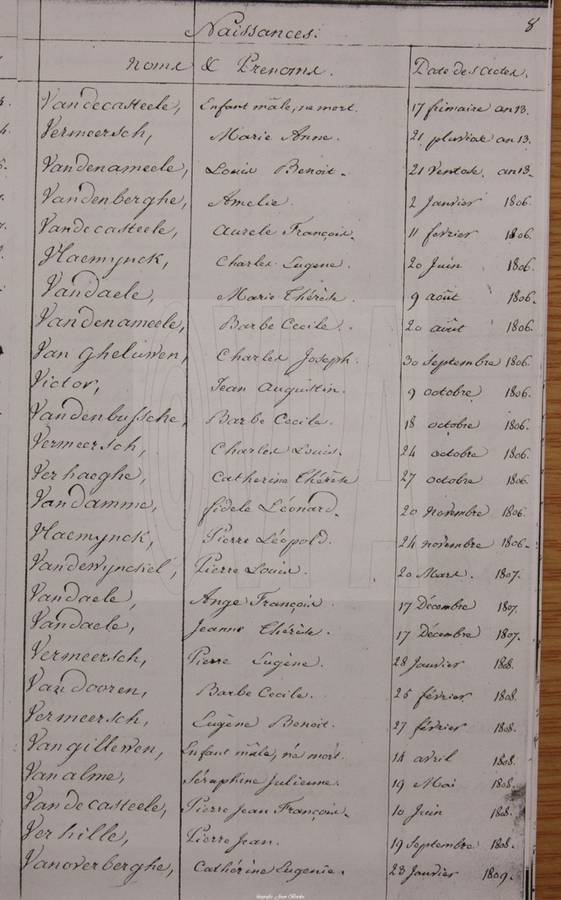 8
Naissances.
Noms & Prenoms. Date des actes.
Vandecasteele, Enfant mâle, né mort. 17 frimaire an 13.
Vermeersch, Marie Anne. 21 pluviose an 13.
Vandenameele, Louis Benoit. 21 Ventose, an 13.
Vandenberghe, Amelie. 2 Janvier 1806.
Vandecasteele, Aurele François. 11 fevrier 1806.
Vlaemynck, Charles Eugene. 20 Juin 1806.
Vandaele, Marie Thérèse. 9 août 1806.
Vandenameele, Barbe Cecile. 20 août 1806.
Van gheluwen, Charles Joseph. 30 Septembre 1806.
Victor, Jean Augustin. 9 octobre 1806.
Vandenbussche, Barbe Cecile. 18 octobre 1806.
Vermeersch, Charles Louis. 24 octobre 1806.
Verhaeghe, Catherine Thérèse 27 octobre 1806.
Vandamme, fidele Léonard. 20 novembre 1806.
Vlaemynck, Pierre Léopold. 24 novembre 1806.
Vandewynckel, Pierre Louis. 20 Mars. 1807.
Vandaele, Ange François. 17 Décembre 1807.
Vandaele, Jeanne Thérèse. 17 Décembre 1807.
Vermeersch, Pierre Eugène. 28 Janvier 1808.
Vandooren, Barbe Cecile. 25 février 1808.
Vermeersch, Eugène Benoit. 27 février 1808.
Vangillewen, Enfant mâle, né mort. 14 avril 1808.
Vanalme, Séraphine Julienne. 19 Mai 1808.
Vandecasteele, Pierre Jean François. 10 Juin 1808.
Verhille, Pierre Jean. 19 Septembre 1808.
Vanoverberghe, Cathérine Eugenie. 23 Janvier 1809.